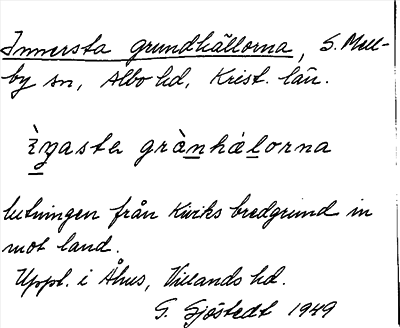 Innersta grundhällorna, S. Mell-
by sn, Albo hd, Krist. län.
grànhálorna
lutningen från Kiviks bredgrund in
mot land.
Uppl. i Åhus, Villands hd.
G. Sjöstedt 1949